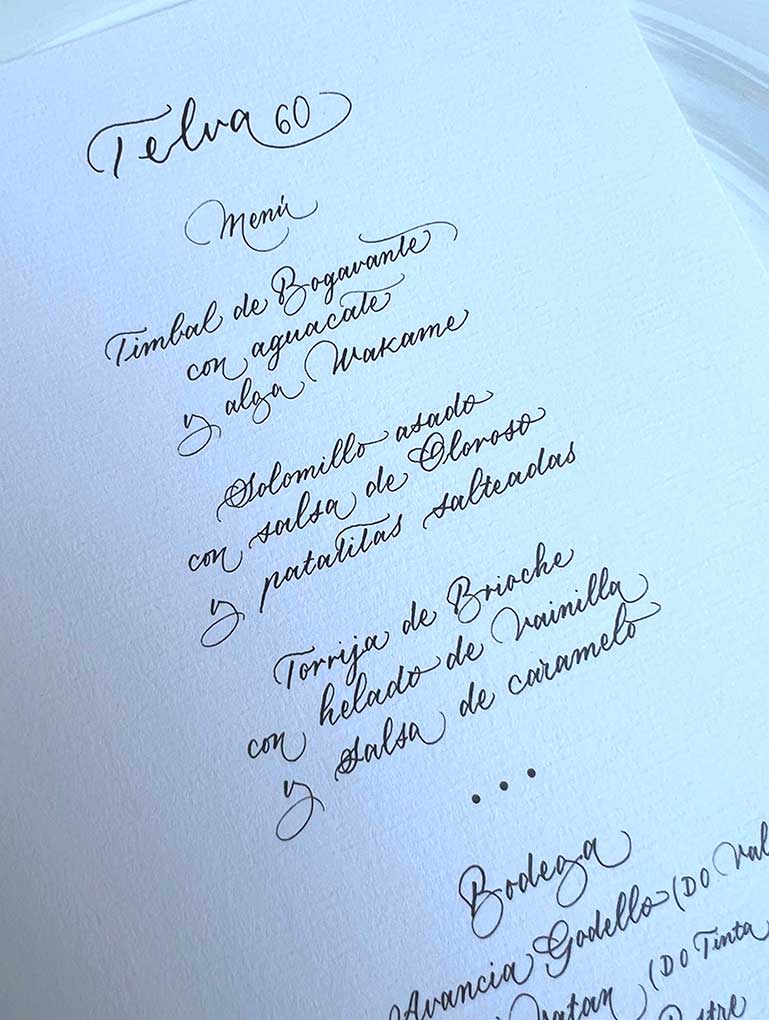 Telva 60
Menú
Timbal de Bogavante
con aguacate
y alga Wakame
Solomillo asado
con salsa de Oloroso
y patatitas salteadas
Torrija de Brioche
con helado de Vainilla
y salsa de caramelo
...
Bodega
Avancia Godello (DO Val
Matan (DO Tinta